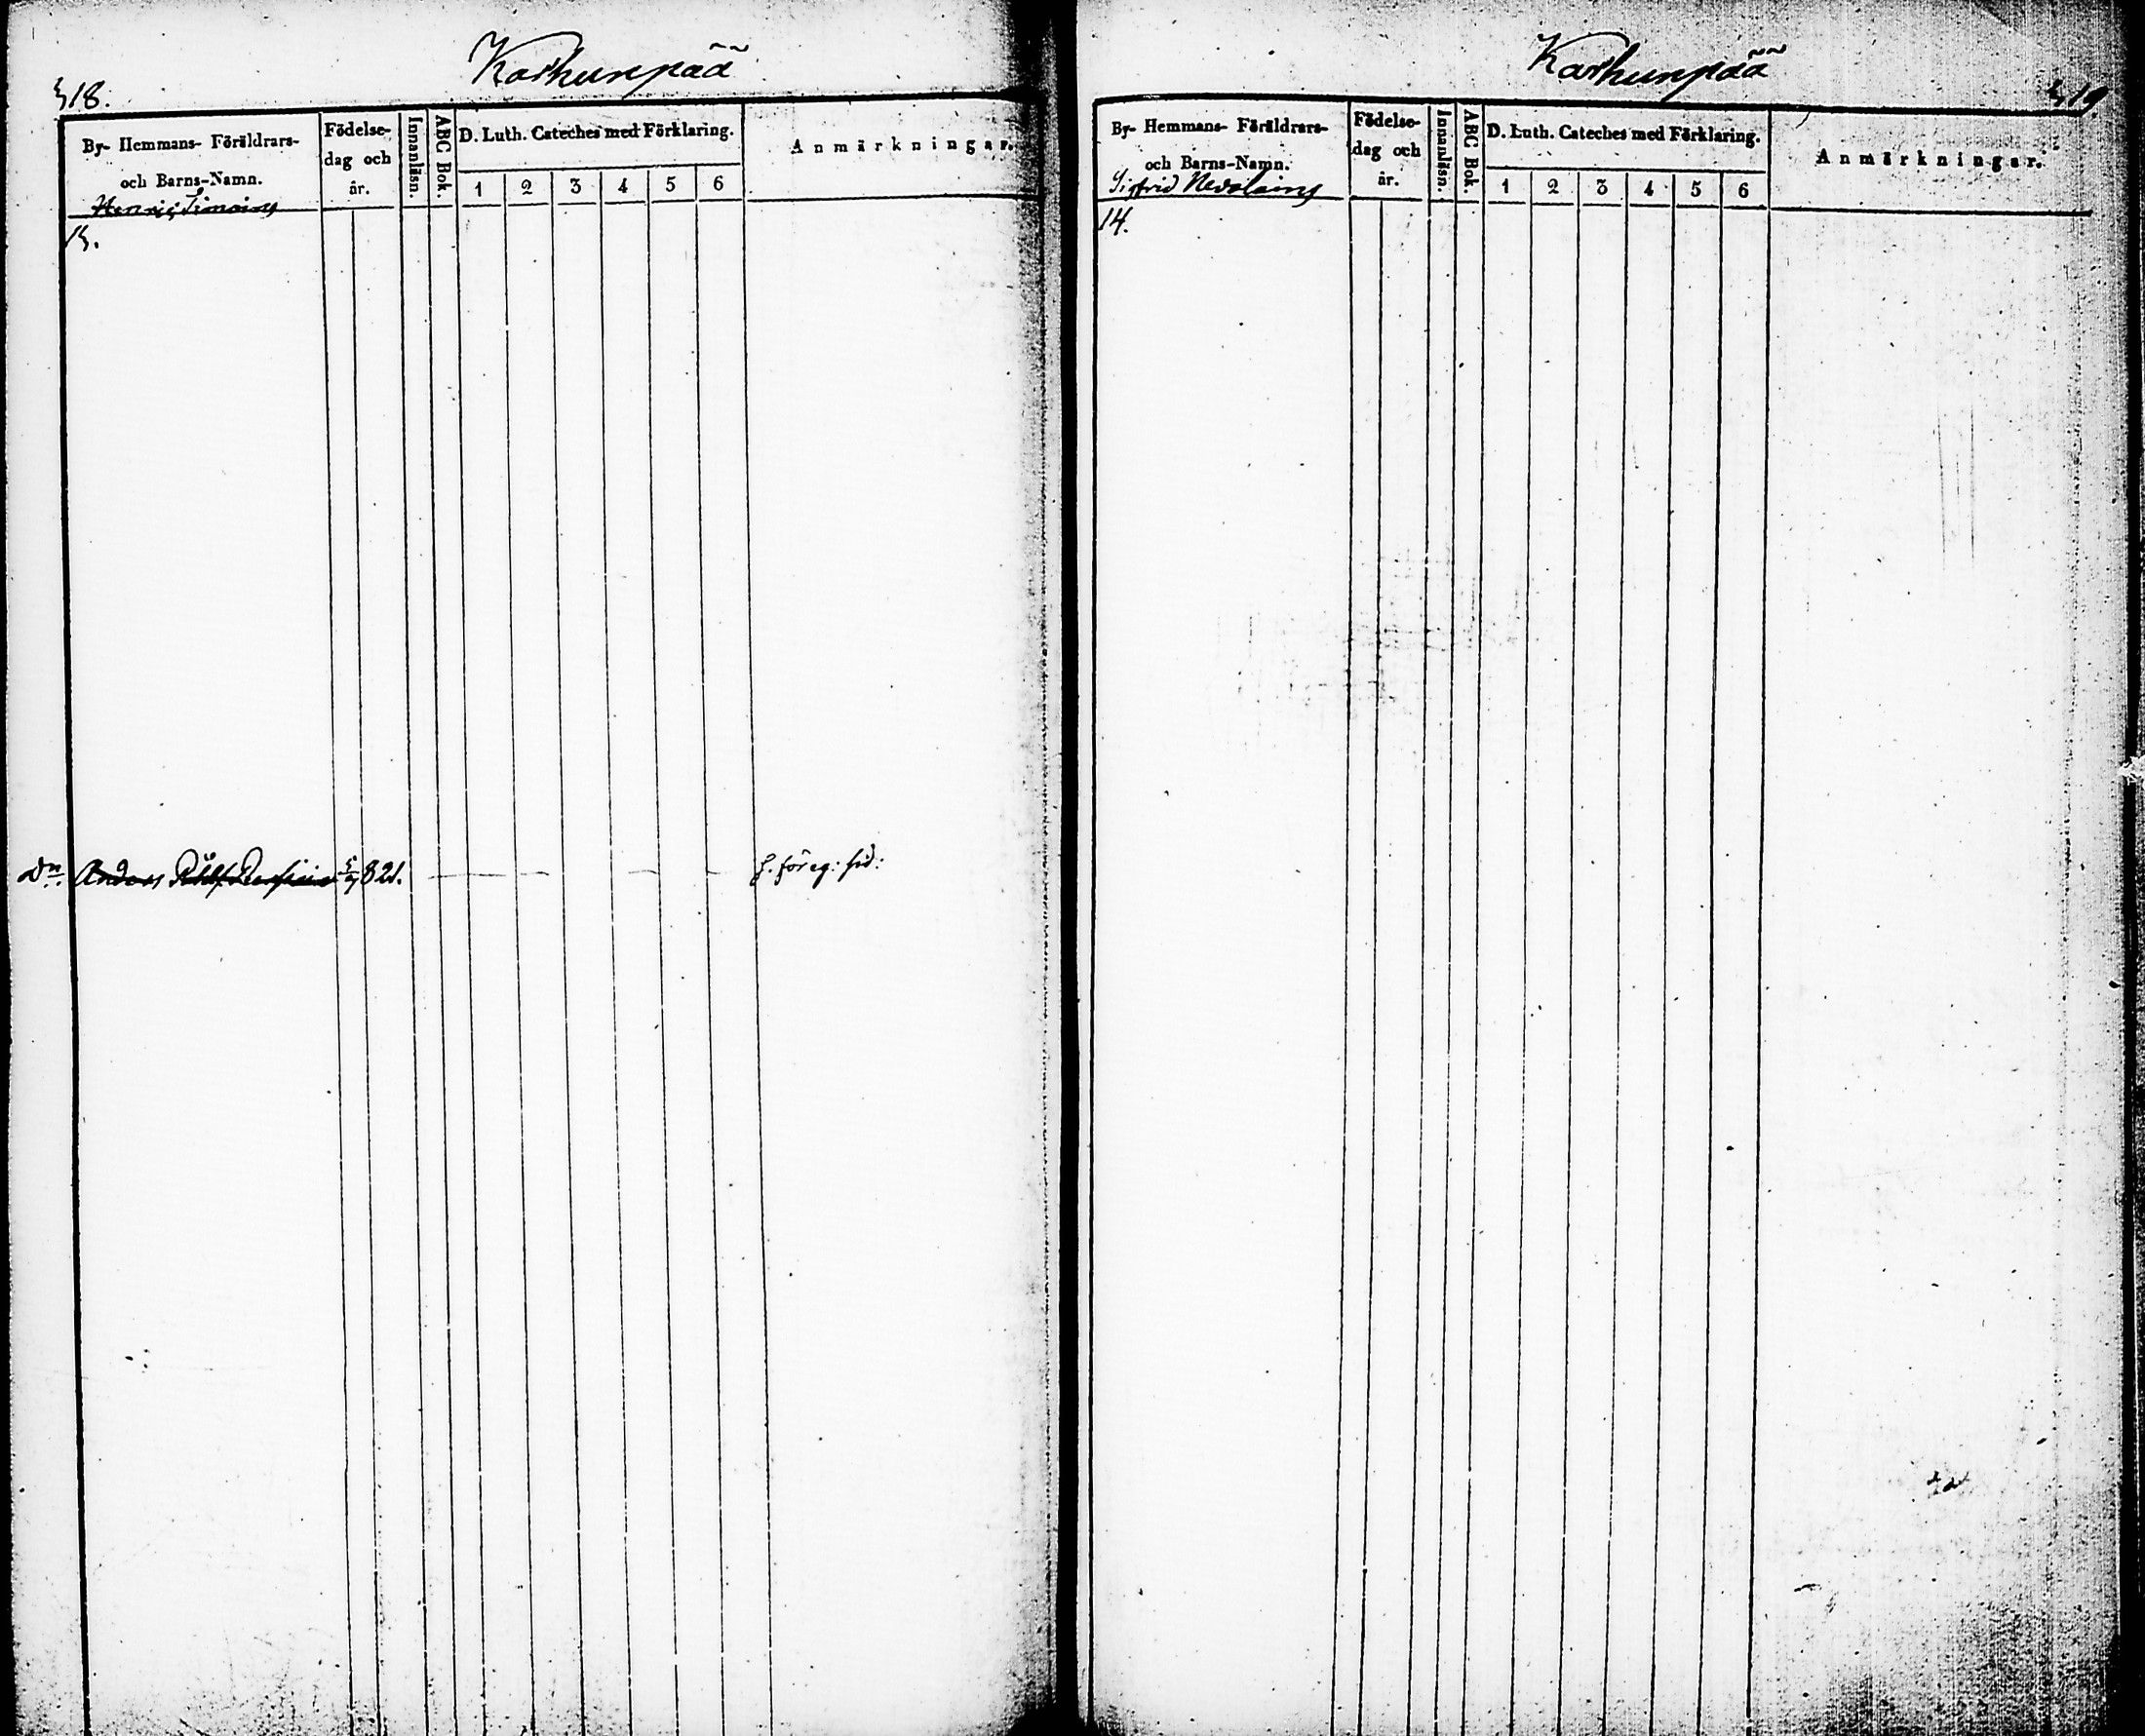 Karhunpää
318.
By- Hemmans- Föräldrars-
och Barns-Namn.
Födelse-
dag och
år.
Innanläsn.
ABC Bok.
D. Luth. Cateches med Förklaring.
1 2 3 4 5 6
Anmärkningar.
13.
Dn Anders 821. — — — — f. föreg: sid:
Karhunpää
319.
By- Hemmans- Föräldrars-
och Barns-Namn.
Sigfrid
Födelse-
dag och
år.
Innanläsn.
ABC Bok.
D. Luth. Cateches med Förklaring.
1 2 3 4 5 6
Anmärkningar.
14.